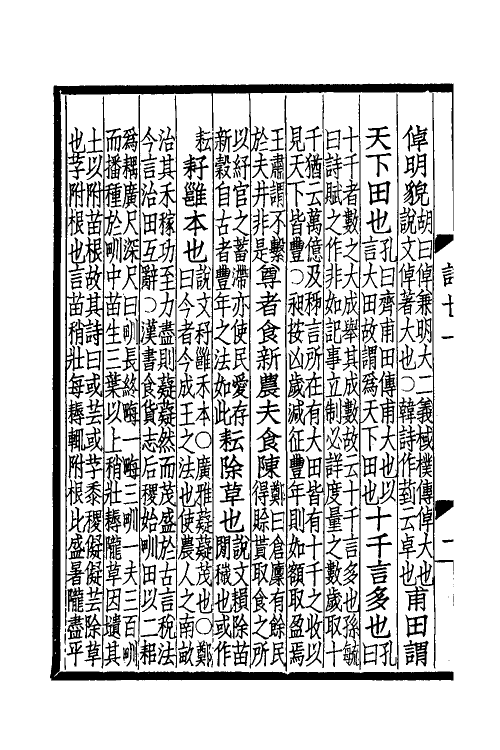 倬明貌胡曰倬兼明大二義棫樸傳倬大也說文倬著大也○韓詩作菿云卓也甫田謂
天下田也孔曰齊甫田傳甫大也以言大田故謂爲天下田也十千言多也孔曰
十千者數之大成舉其成數故云十千言多也孫毓曰詩賦之作非如記事立制必詳度量之數歲取十
千猶云萬億及秭言所在有大田皆有十千之收以見天下皆豐○昶按凶歲減征豐年則如額取盈焉
王肅謂不繫於夫井非是尊者食新農夫食陳鄭曰倉廩有餘民得賒貰取食之所
以紓官之蓄滯亦使民愛存新穀自古者豐年之法如此耘除草也說文䅰除苗閒穢也或作
耘耔雝本也說文耔雝禾本○廣雅薿薿茂也○鄭曰今者今成王之法也使農人之南畝
治其禾稼功至力盡則薿薿然而茂盛於古言稅法今言治田互辭○漢書食貨志后稷始甽田以二耜
爲耦廣尺深尺曰甽長終畮一畮三甽一夫三百甽而播種於甽中苗生三葉以上稍壯耨隴草因壝其
土以附苗根故其詩曰或芸或芓黍稷儗儗芸除草也芓附根也言苗稍壯每耨輒附根比盛暑隴盡平